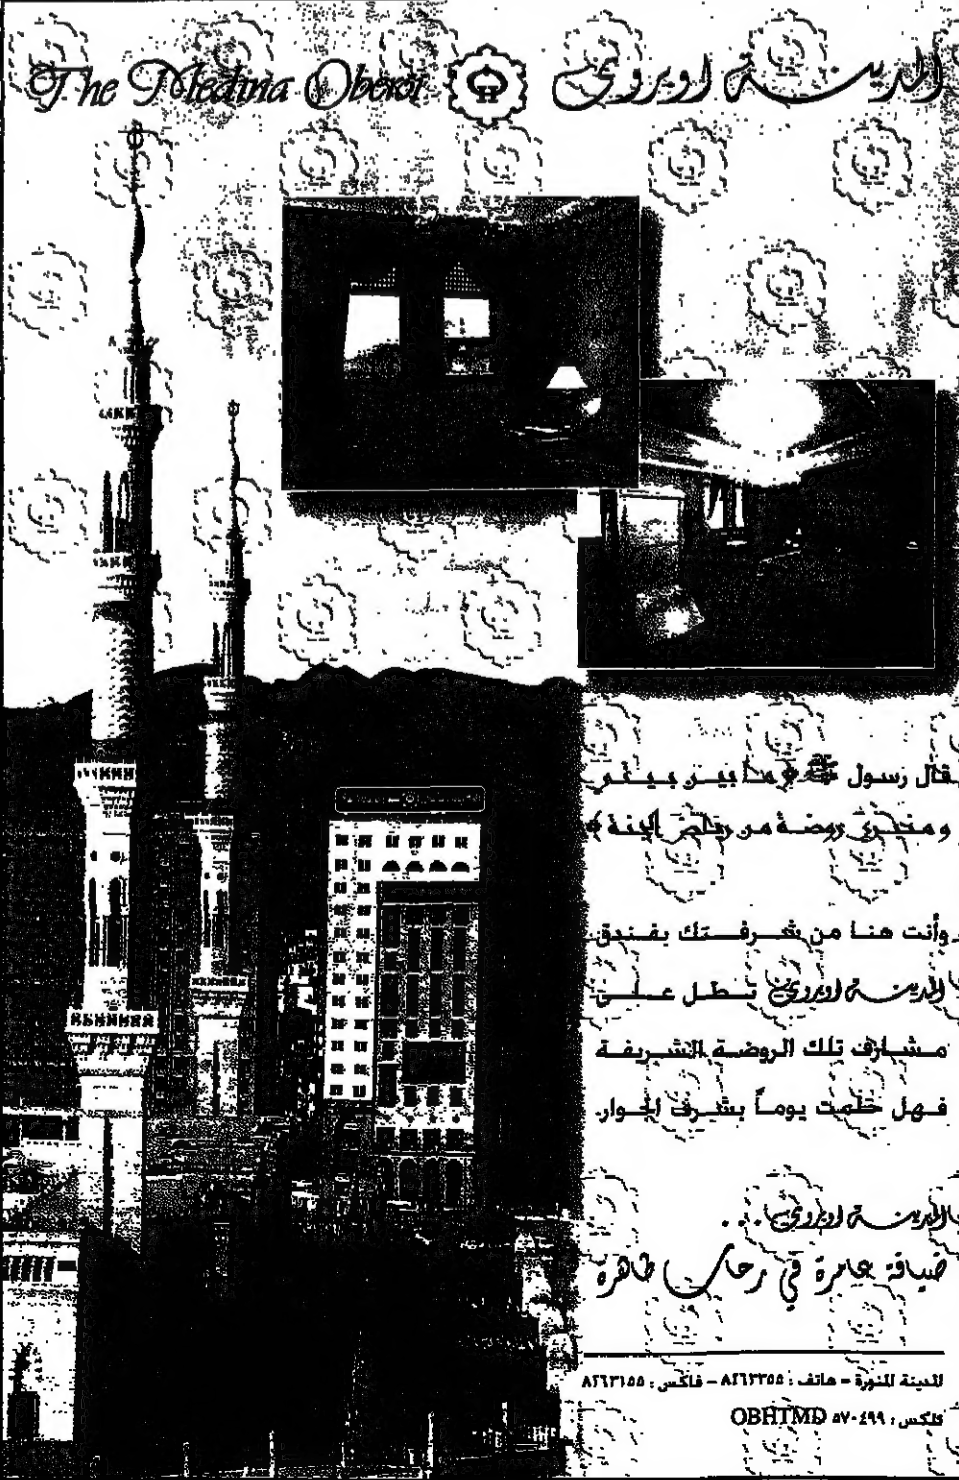 The Medina Oberoi
المدينة اوبروي
قال رسول ﷺ ﴿ ما بين بيتي
و منبري روضة من رياض الجنة ﴾
وأنت هنا من شرفتك بفندق
المدينة اوبروي تطل على
مشارف تلك الروضة الشريفة
فهل حلمت يوماً بشرف الجوار.
المدينة اوبروي ...
ضيافة عامرة في رحاب طاهرة
المدينة المنورة - هاتف : ٨٢٦٣٣٥٥ - فاكس : ٨٢٦٣١٥٥
تلكس : ٥٧٠٤٩٩ OBHTMD